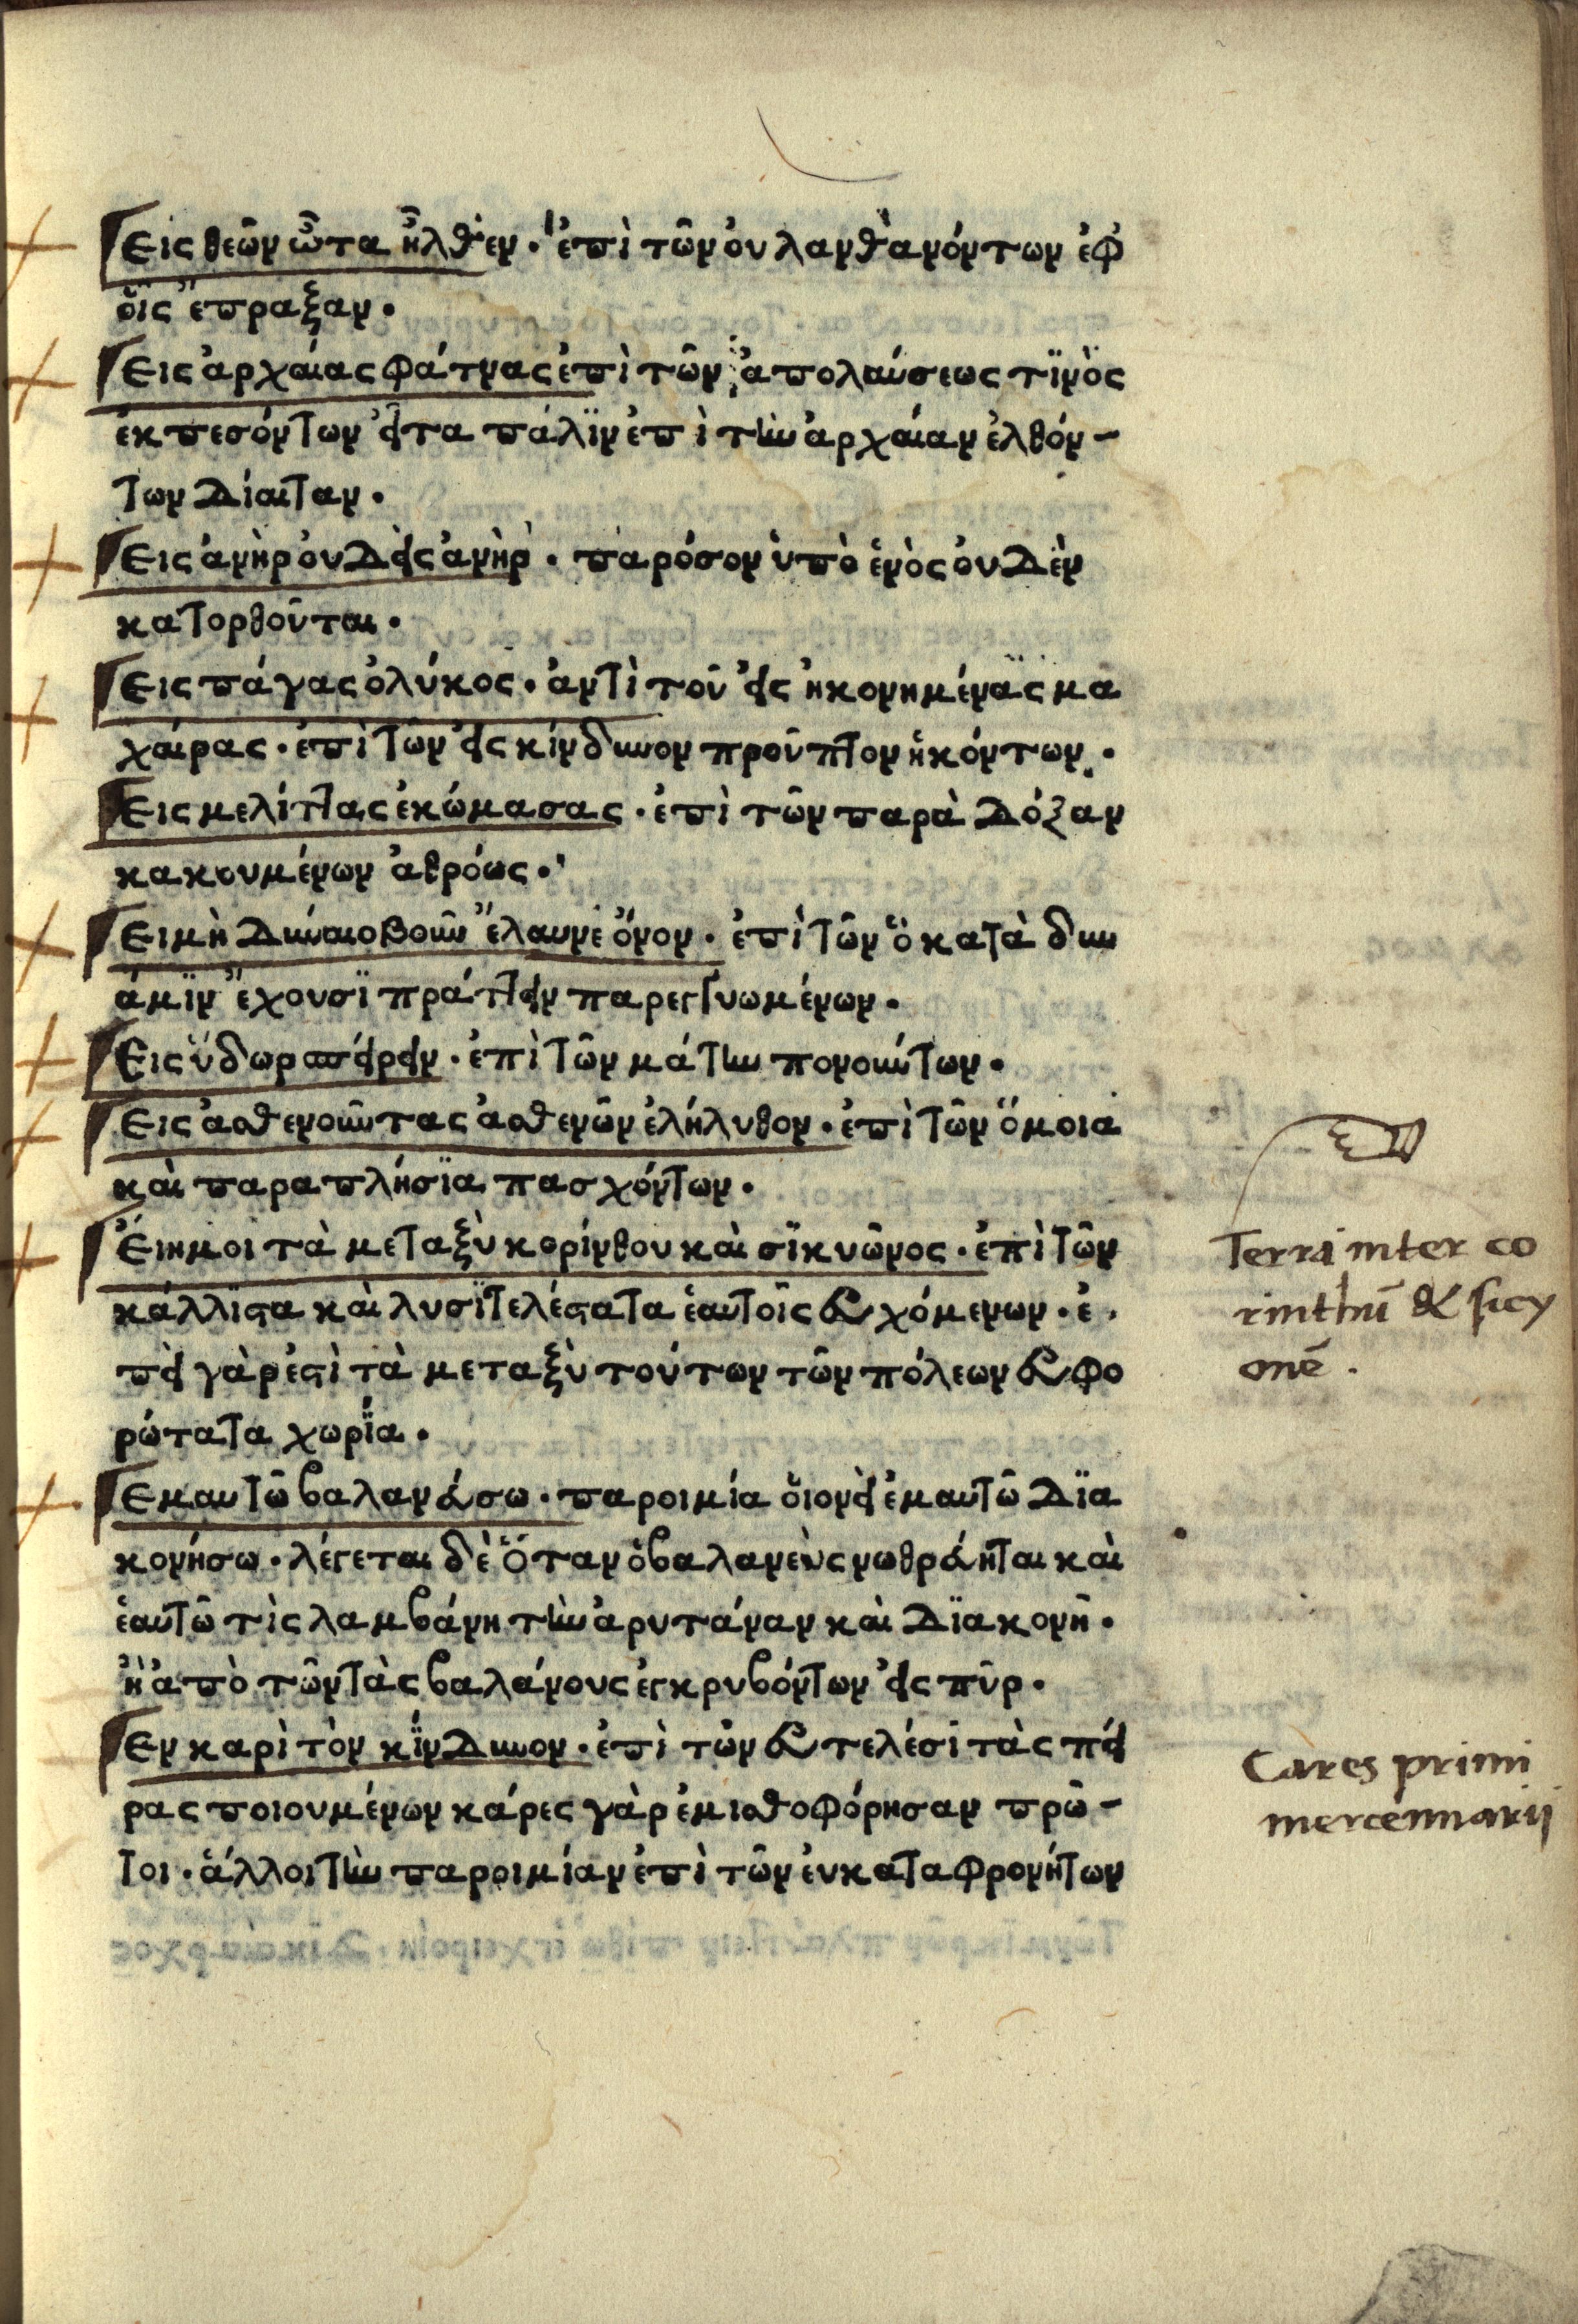 Εις θεῶν ὦτα ἦλθεν · ἐπὶ τῶν ου λανθανόντων ἐφ
οἷς ἔπραξαν ·
Εις ἀρχαίας φάτνας ἐπὶ τῶν ἀπολαύσεως τινὸς
ἐκπεσόντων εἶτα πάλιν ἐπὶ τὴν ἀρχαίαν ἐλθόν-
των δίαιταν ·
Εις ἀνὴρ ουδεὶς ἀνὴρ · παρόσον ὑπὸ ἑνὸς ουδὲν
κατορθοῦται ·
Εις πάγας ὁ λύκος · ἀντὶ τοῦ εἰς ἠκονημένας μα
χαίρας · ἐπὶ τῶν εἰς κίνδυνον προῦπτον ἡκόντων ·
Εις μελίττας ἐκώμασας · ἐπὶ τῶν παρὰ δόξαν
κακουμένων ἀθρόως ·
Ει μὴ δύναιο βοῦν ἔλαυνε ὄνον · ἐπὶ τῶν ὃ κατὰ δυν
άμιν ἔχουσι πράττειν παρεγγυωμένων ·
Εις ὕδωρ σπείρειν · ἐπὶ τῶν μάτην πονούντων ·
Εις ἀσθενοῦντας ἀσθενῶν ἐλήλυθον · ἐπὶ τῶν ὅμοια
καὶ παραπλήσια πασχόντων ·
Ἔιη μοι τὰ μεταξὺ κορίνθου καὶ σικυῶνος · ἐπὶ τῶν
κάλλιστα καὶ λυσιτελέστατα ἑαυτοῖς ευχόμενων · ἐ
πεὶ γὰρ ἐστὶ τὰ μεταξὺ τούτων τῶν πόλεων ευφο
ρώτατα χωρία ·
Εμαυτῶ βαλανεύσω · παροιμία οἱονεὶ ἐμαυτῶ δια
κονήσω · λέγεται δὲ ὅταν ὁ βαλανεὺς νωθρεύηται καὶ
ἑαυτῶ τὶς λαμβάνη τὴν ἀρυτάναν καὶ διακονῆ ·
ἢ ἀπὸ τῶν τὰς βαλάνους ἐγκρυβόντων εἰς πῦρ ·
Εν καρὶ τὸν κίνδυνον · ἐπὶ τῶν ευτελέσι τὰς πεί
ρας ποιουμένων κάρες γὰρ ἐμισθοφόρησαν πρῶ-
τοι · ἄλλοι τὴν παροιμίαν ἐπὶ τῶν ευκαταφρονήτων
Terra inter co
rinthū & sicy
onē .
Cares primi
mercennarij